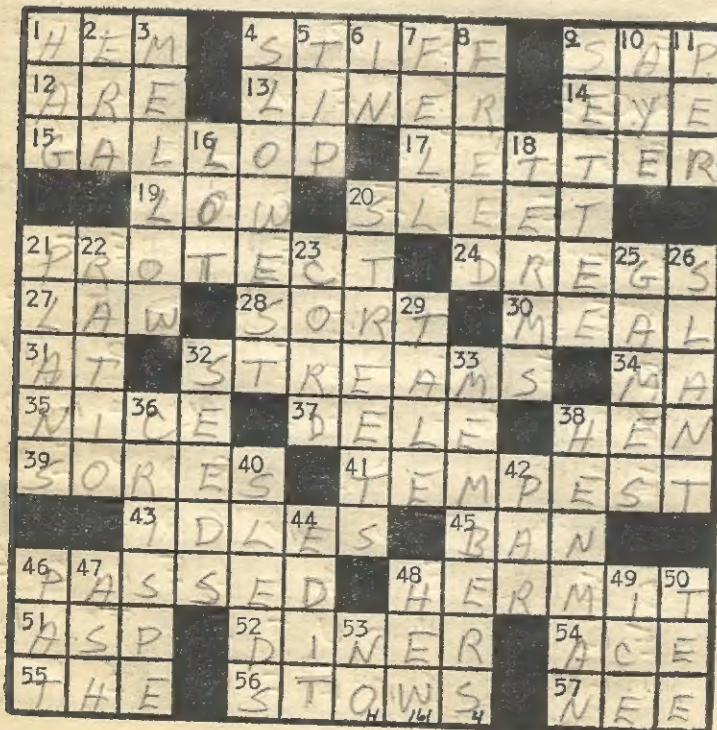 1 H 2 E 3 M 4 S 5 T 6 I 7 F 8 E 9 S 10 A 11 P
12 A R E 13 L I N E R 14 E Y E
15 G A L 16 L O P 17 L E 18 T T E R
19 L O W 20 S L E E T
21 P 22 R O T E 23 C T 24 D R E 25 G 26 S
27 L A W 28 S O R 29 T 30 M E A L
31 A T 32 S T R E A 33 M S 34 M A
35 N I 36 C E 37 D E L E 38 H E N
39 S O R E 40 S 41 T E M 42 P E S T
43 I D L 44 E S 45 B A N
46 P 47 A S S E D 48 H E R M 49 I 50 T
51 A S P 52 D I 53 N E R 54 A C E
55 T H E 56 S T O W S 57 N E E
H 161 4